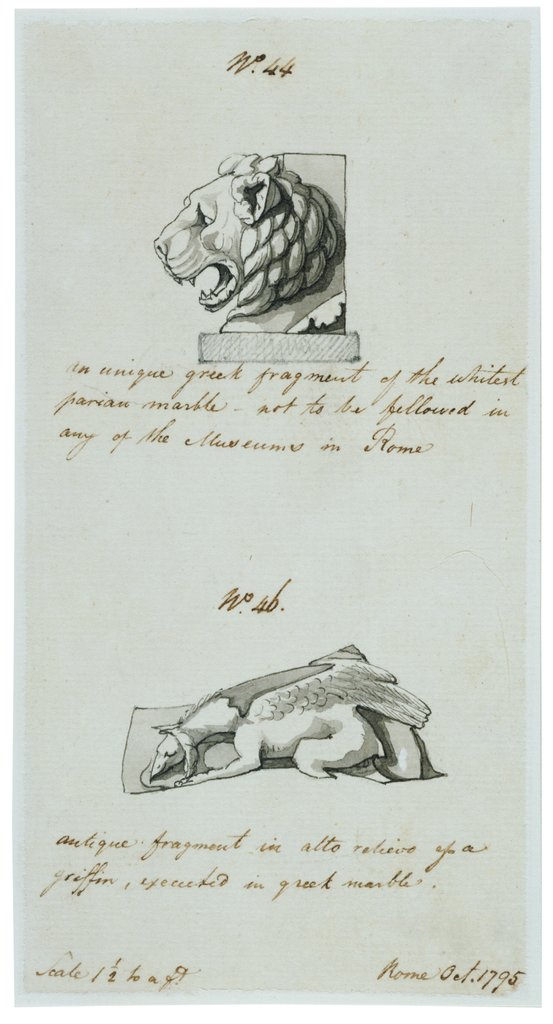 No. 44
an unique greek fragment of the whitest
parian marble - not to be fellowed in
any of the Museums in Rome
No. 46.
antique fragment in alto relievo of a
griffin, executed in greek marble.
Scale 1 1/2 to a ft
Rome Oct. 1795